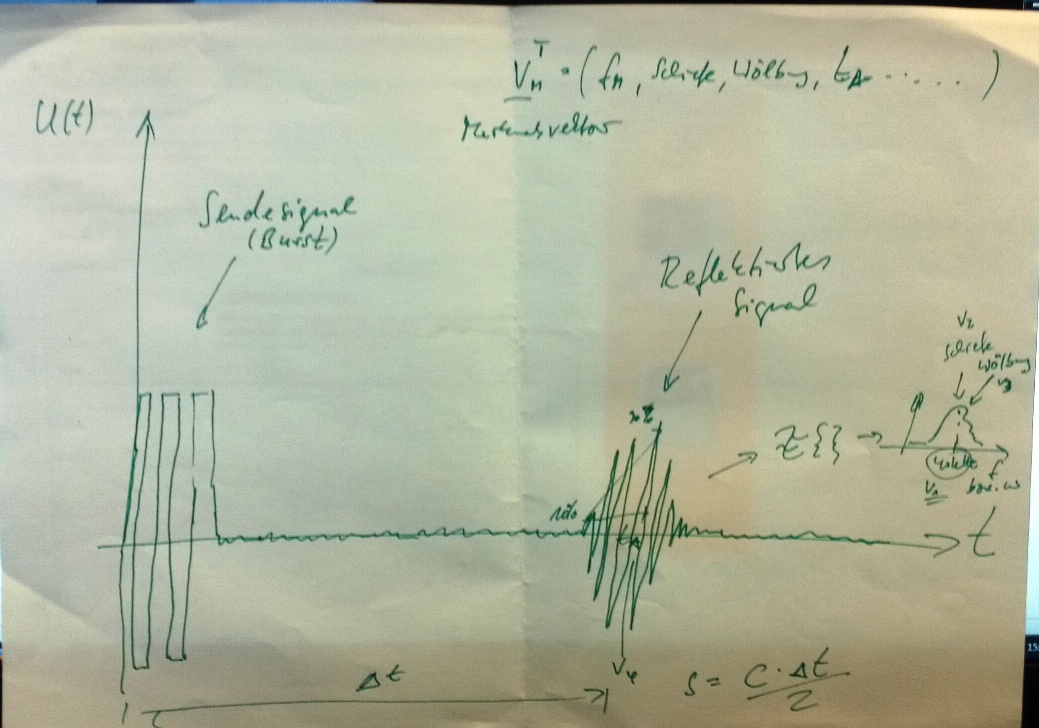 V_n^T = (fn, Schiefe, Wölbung, t_A ......)
Merkmalsvektor
U(t)
Sendesignal
(Burst)
Reflektiertes
Signal
V2
Schiefe
Wölbung
V3
{}
f
V1
bzw. ω
10%
t_A
t
V4
Δt
s = c · Δt / 2